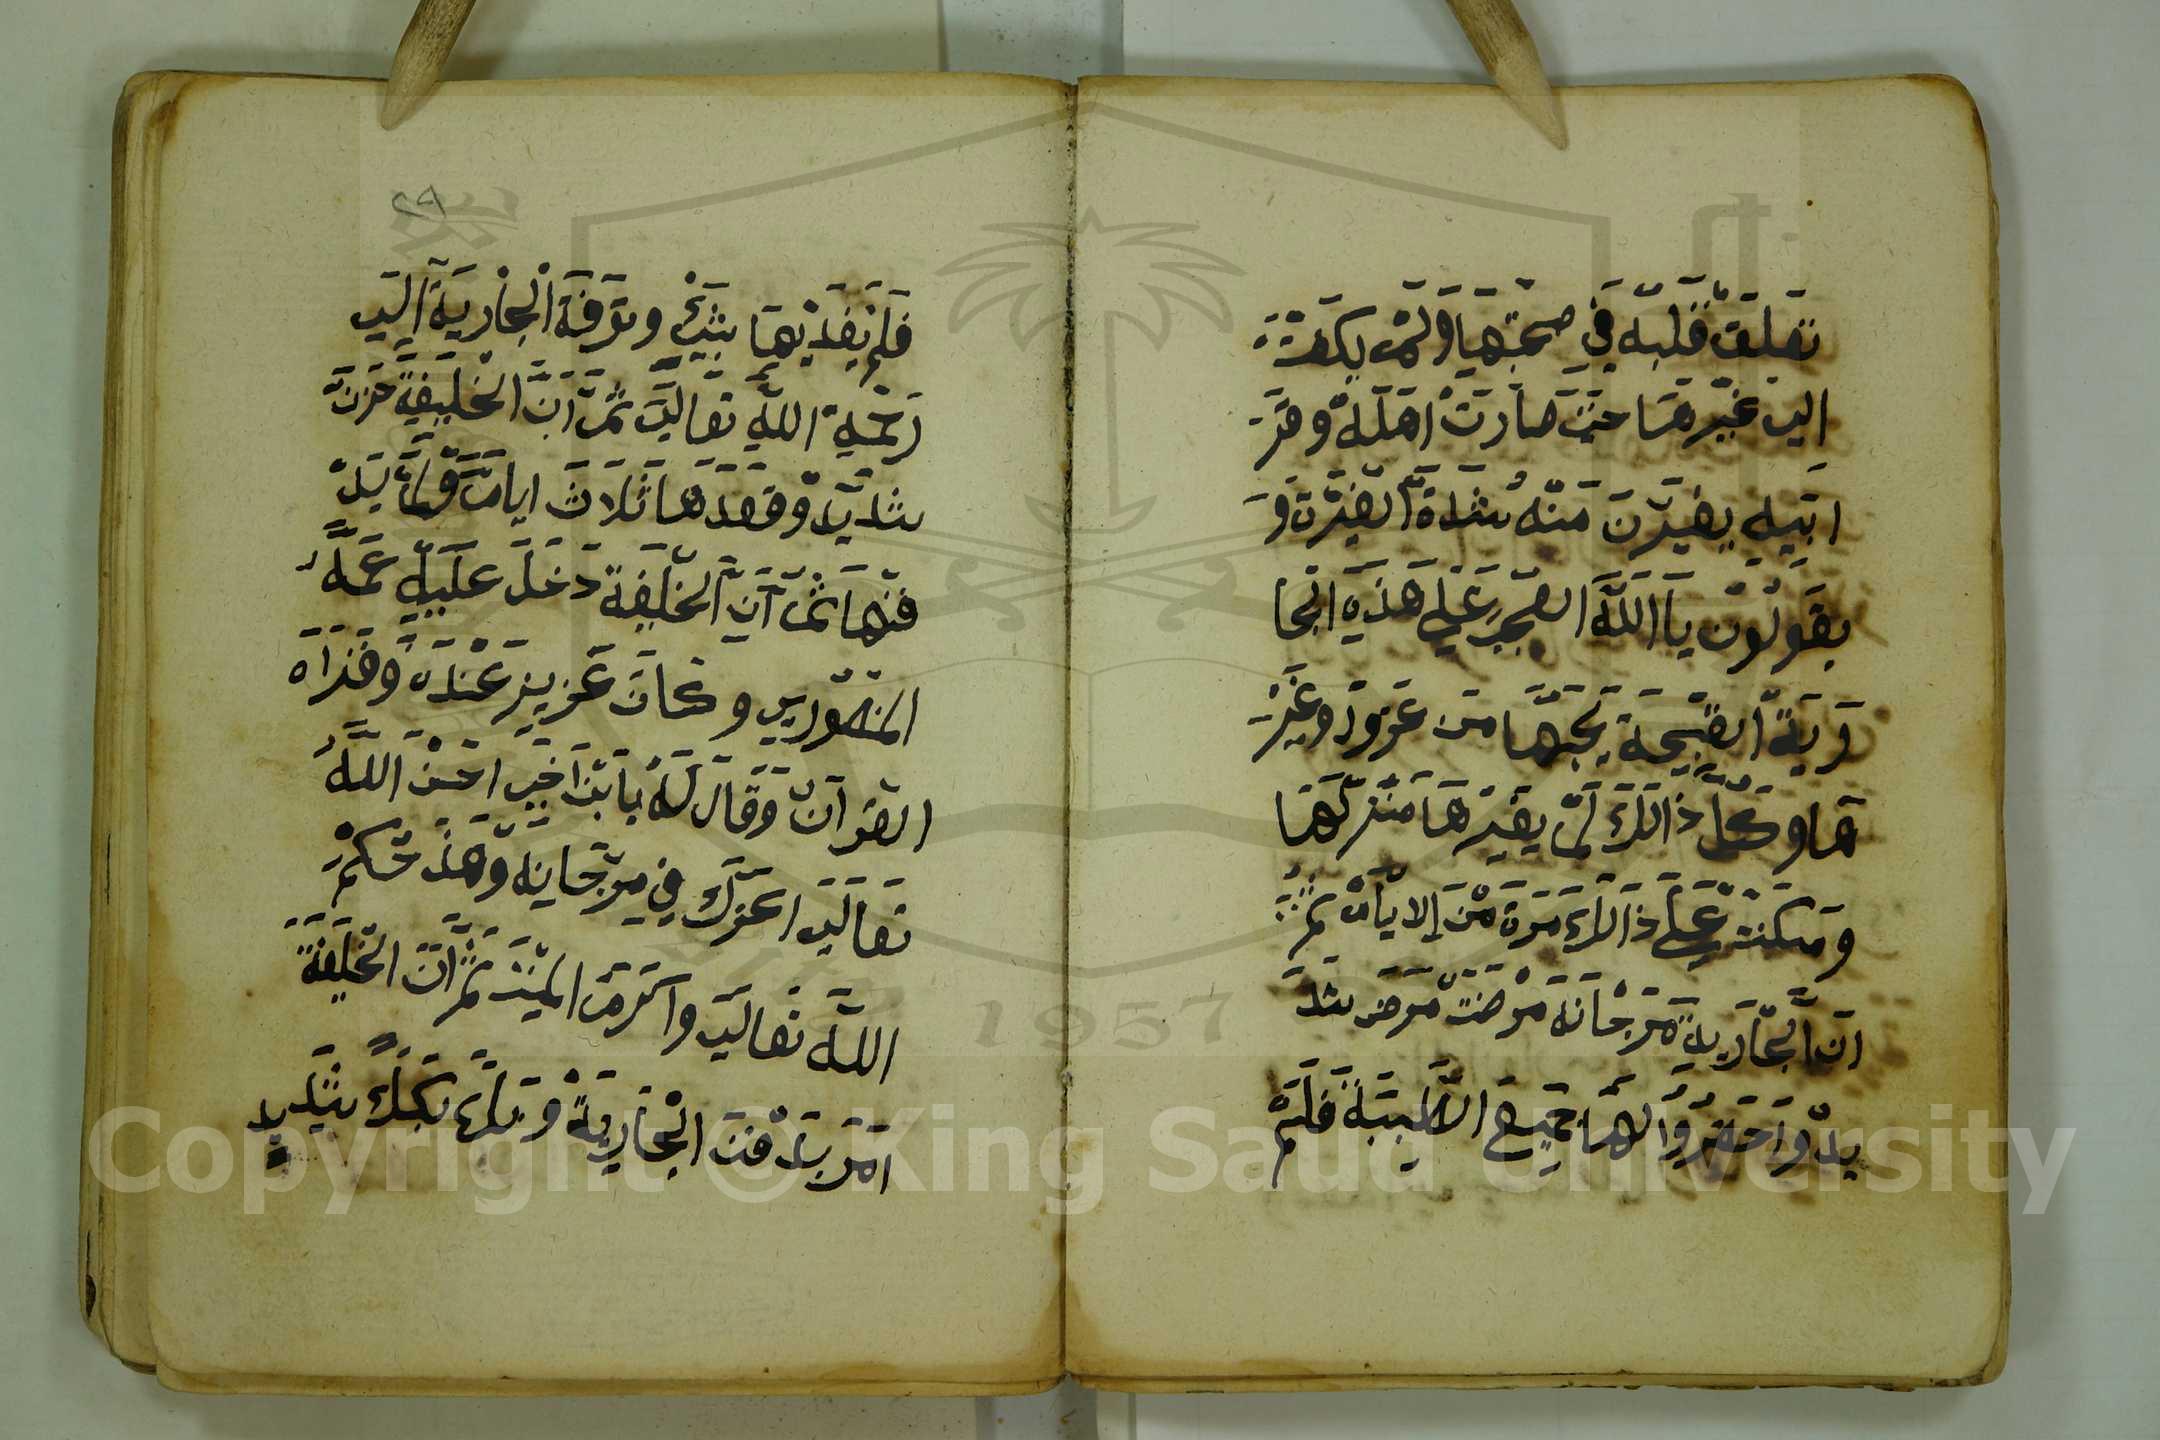 تعلق قلبه في صحبتها ولم يلتفت
الى غيرها حتى صارت اهله وقر
ابيه يغيرن منه شدة الغيرة و
يقولون يا الله الصبر على هذه الجا
رية القبيحة يحبها من عزول وغير
ها وكل ذالك لم يغيرها منزلها
ومكنت على ذالك مرة من الايام ثم
ان الجارية مرجانة مرضت مرض شد
يد واحضروا لها جميع الطبيبة فلم
٢٩
فلم يفديها بشئ وتوفة الجارية الى
رحمة الله تعالى ثم ان الخليفة حزن
شديد وقعدها ثلاث ايام ولم يد
فنها ثم ان الخلفة دخل عليه عمه
المنصوري وكان عزيز عنده وقراه
القران وقال له يا بن اخي احسن الله
تعالى اعزك في مرجانه وهذ حكم
الله تعالى واكرم الميت ثم ان الخلفة
امر بدفن الجارية وبكى بكاء شديد
Copyright © King Saud University
1957